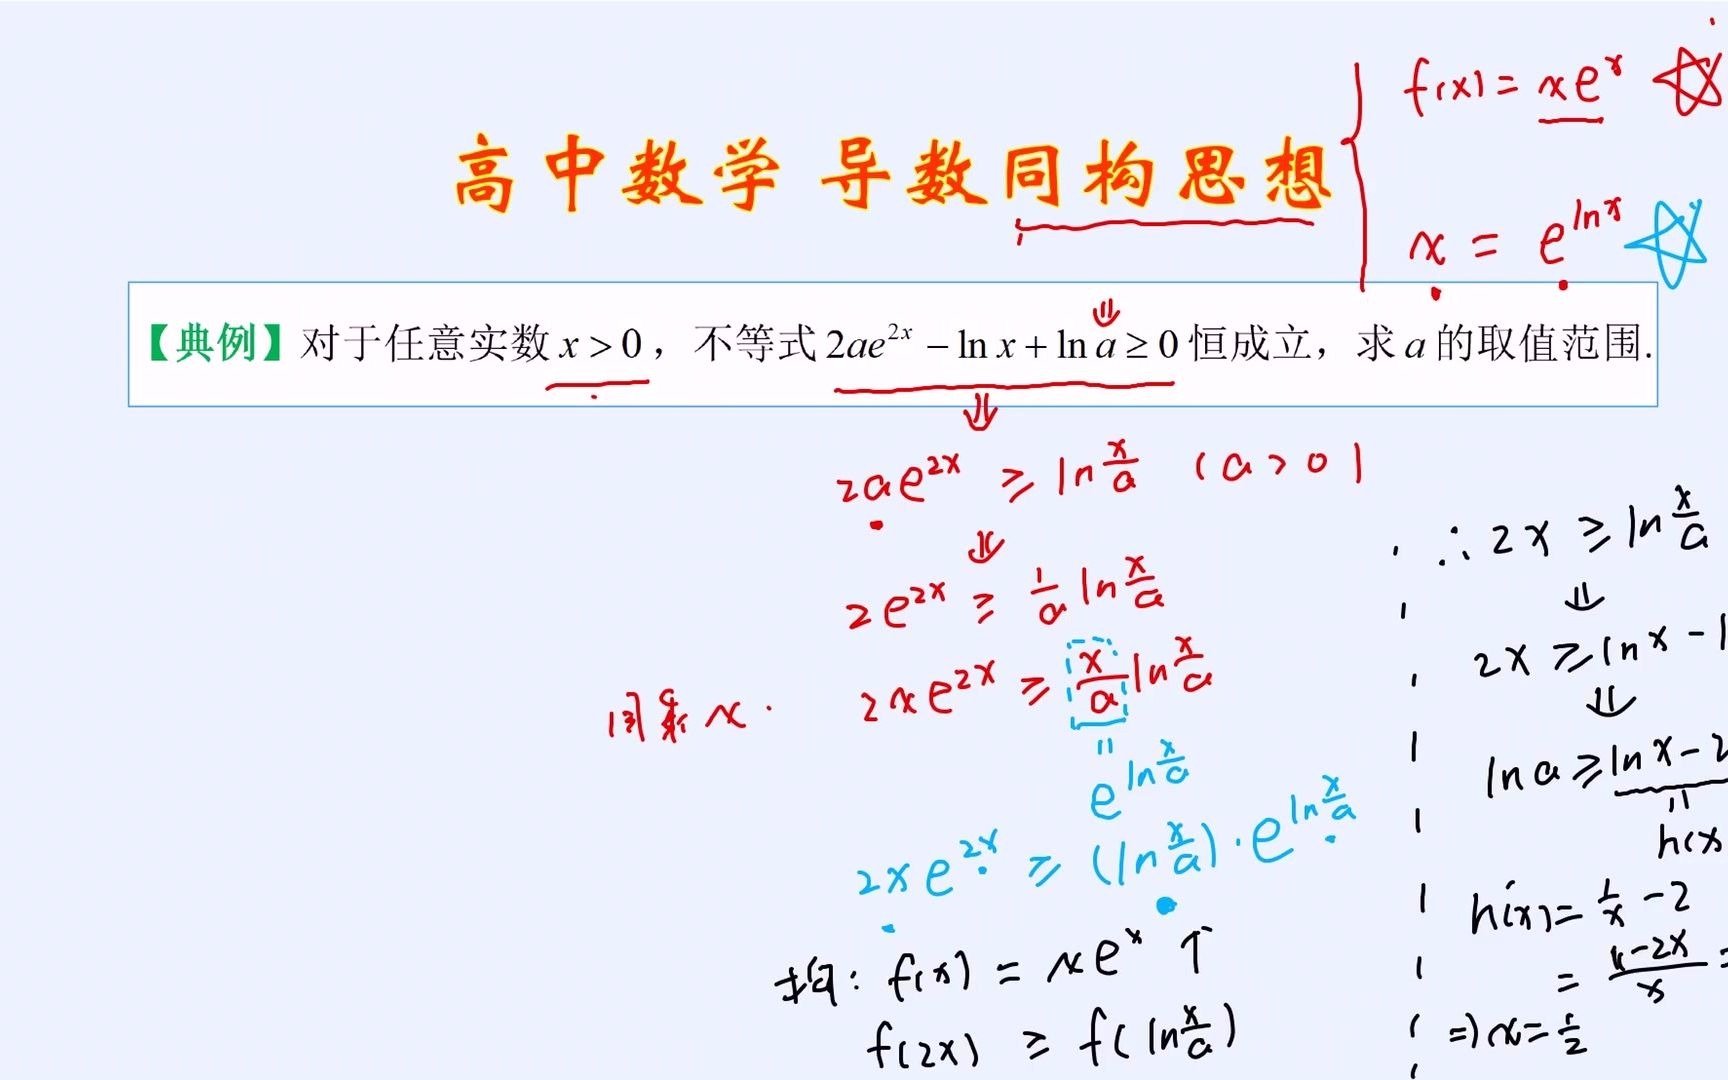 高中数学 导数同构思想
f(x) = xe^x
x = e^{ln x}
【典例】对于任意实数 x > 0，不等式 2ae^{2x} − ln x + ln a ≥ 0 恒成立，求 a 的取值范围.
2ae^{2x} ≥ ln x/a (a > 0)
2e^{2x} ≥ 1/a ln x/a
同乘 x. 2xe^{2x} ≥ x/a ln x/a
= e^{ln x/a}
2xe^{2x} ≥ (ln x/a)·e^{ln x/a}
构: f(x) = xe^x ↑
f(2x) ≥ f(ln x/a)
∴ 2x ≥ ln x/a
2x ≥ ln x − l
ln a ≥ ln x − 2
h(x
h'(x) = 1/x − 2
= 1−2x/x =
⇒) x = 1/2